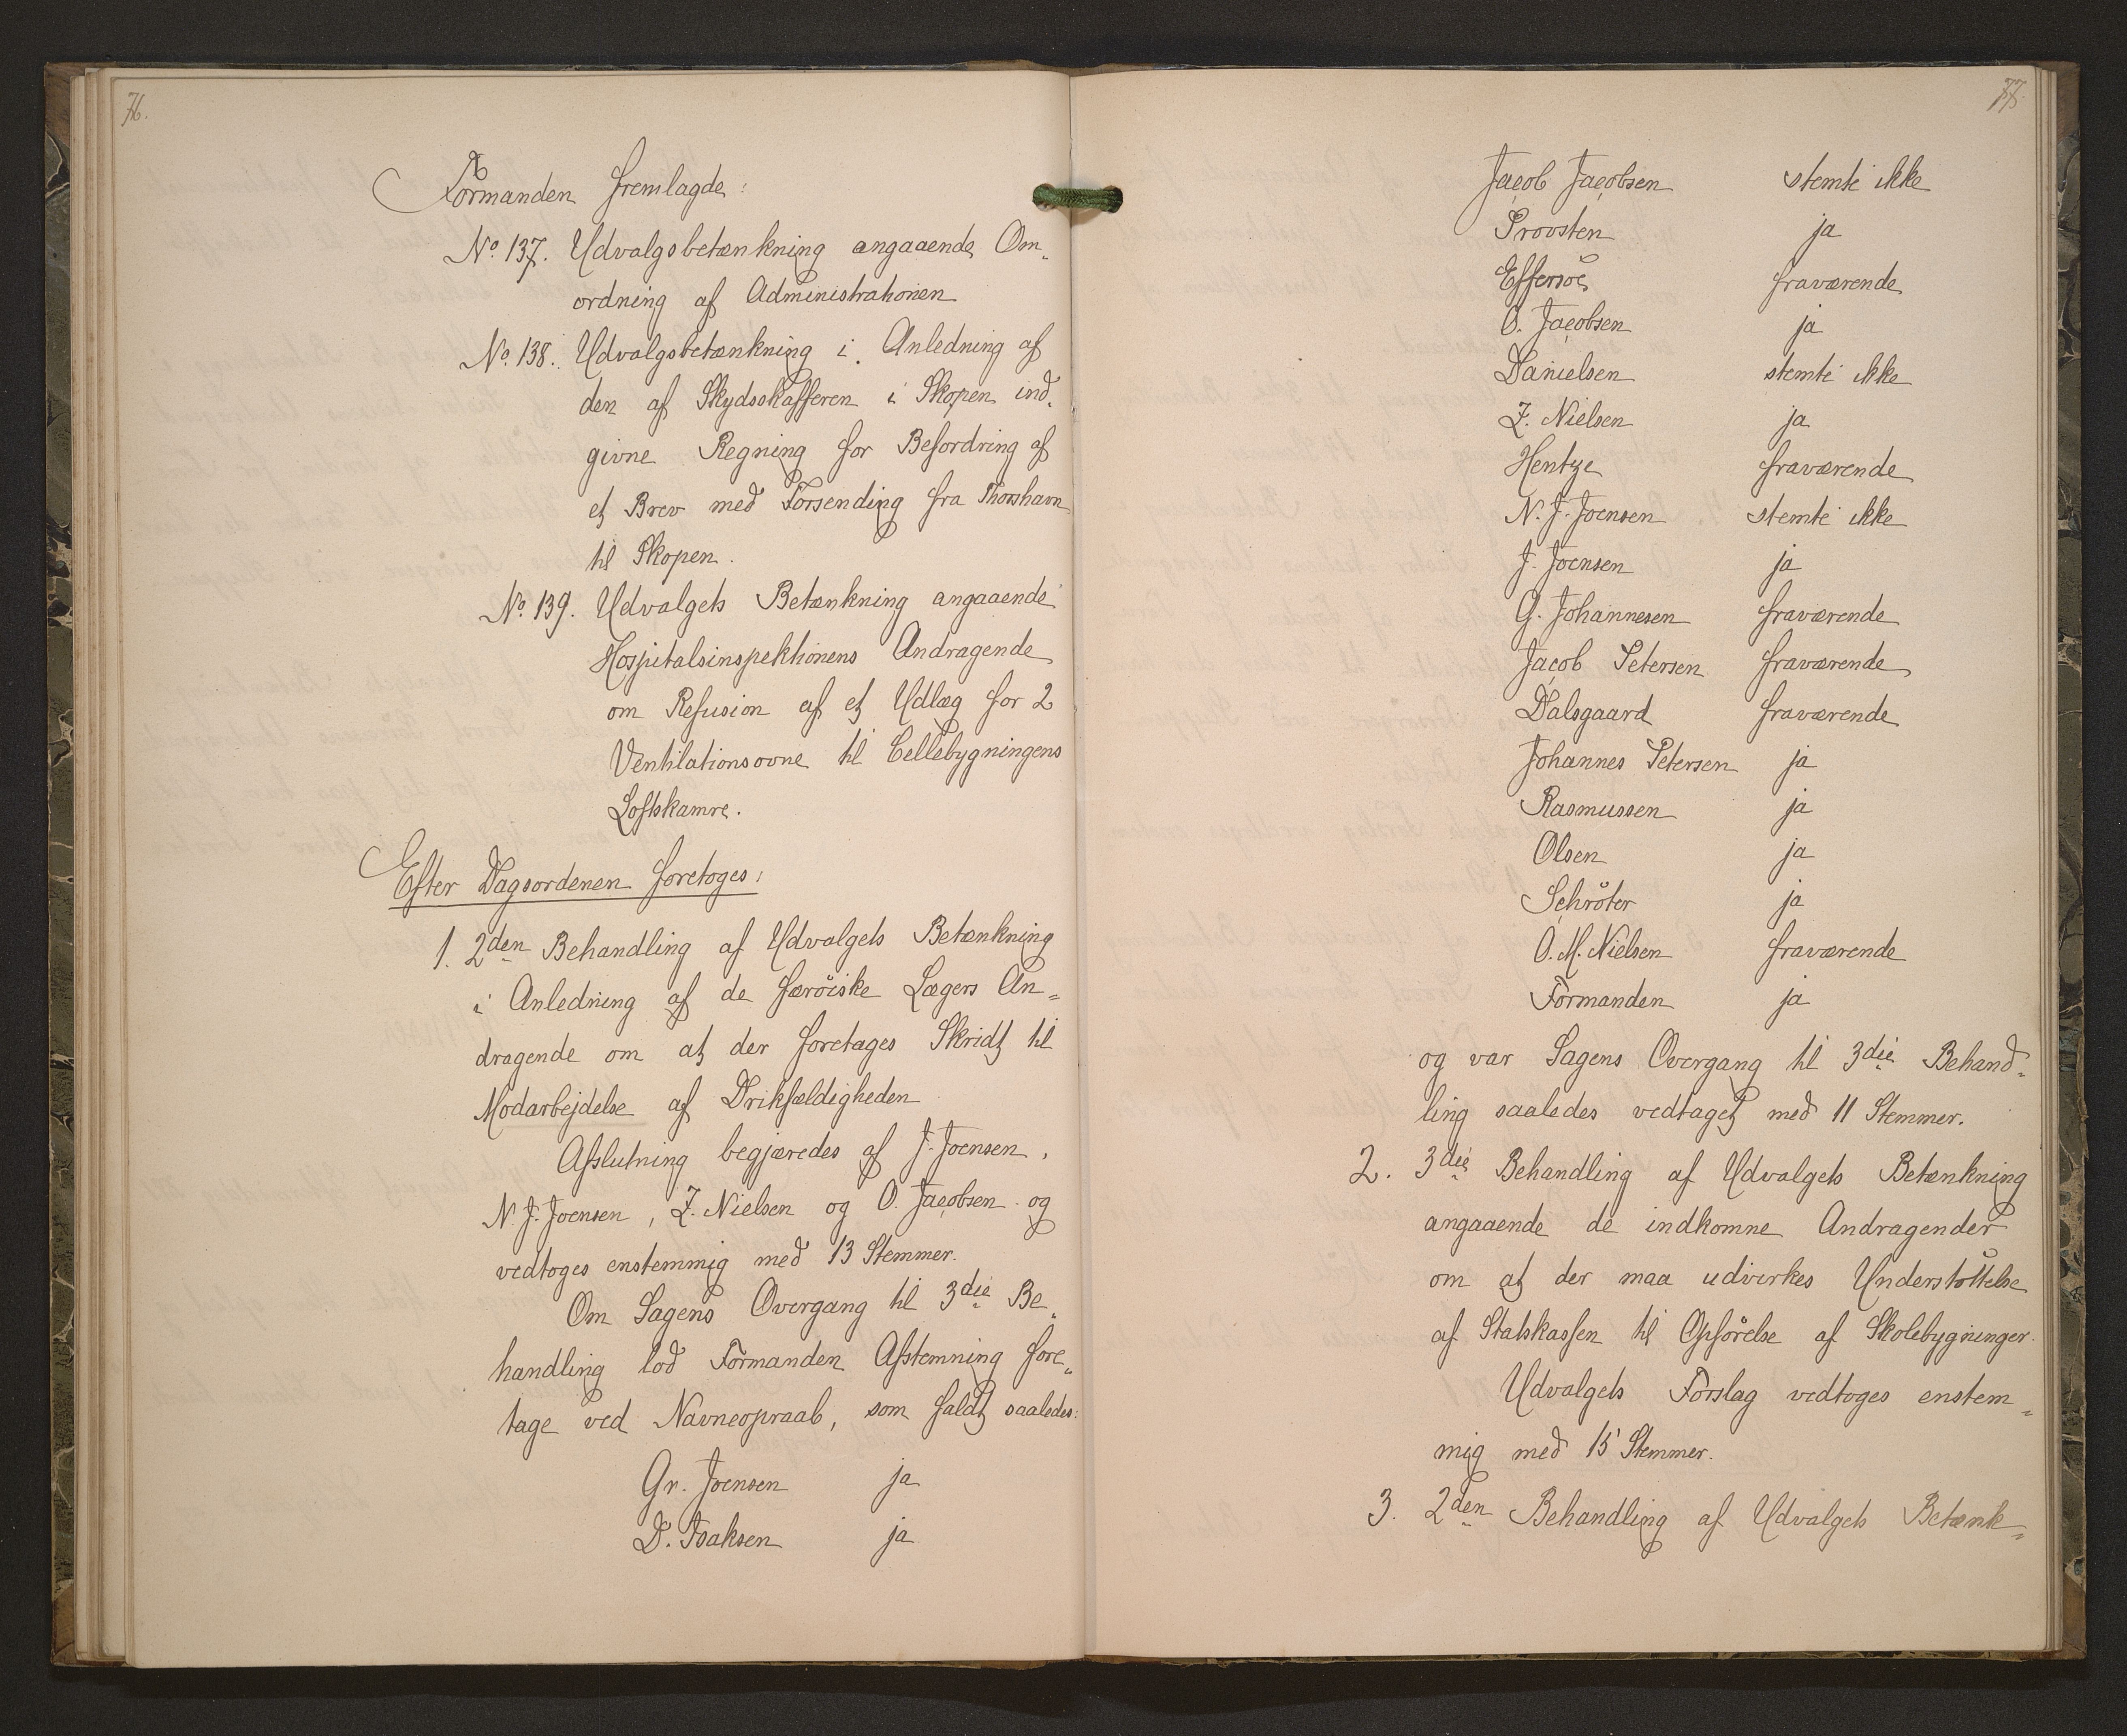 76.
Formanden fremlagde:
No. 137. Udvalgsbetænkning angaaende Om-
ordning af Administrationen
No. 138. Udvalgsbetænkning i Anledning af
den af Skydsskafferen i Skopen ind-
givne Regning for Befordring af
et Brev med Forsending fra Thorshavn
til Skopen.
No. 139. Udvalgets Betænkning angaaende
Hospitalsinspektionens Andragende
om Refusion af et Udlæg for 2
Ventilationsovne til Cellebygningens
Loftskamre.
Efter Dagsordenen foretoges:
1. 2den Behandling af Udvalgets Betænkning
i Anledning af de færöiske Lægers An-
dragende om at der foretages Skridt til
Modarbejdelse af Drikfældigheden
Afslutning begjæredes af J. Joensen,
N. J. Joensen, Z. Nielsen og O. Jacobsen og
vedtoges enstemmig med 13 Stemmer.
Om Sagens Overgang til 3die Be-
handling lod Formanden Afstemning fore-
tage ved Navneopraab, som faldt saaledes:
Gr. Joensen ja
D. Isaksen ja
77.
Jacob Jacobsen stemte ikke
Provsten ja
Effersöe fraværende
O. Jacobsen ja
Danielsen stemte ikke
Z. Nielsen ja
Hentze fraværende
N. J. Joensen stemte ikke
J. Joensen ja
G. Johannesen fraværende
Jacob Petersen fraværende
Dalsgaard fraværende
Johannes Petersen ja
Rasmussen ja
Olsen ja
Schröter ja
O. M. Nielsen fraværende
Formanden ja
og var Sagens Overgang til 3die Behand-
ling saaledes vedtaget med 11 Stemmer.
2. 3die Behandling af Udvalgets Betænkning
angaaende de indkomne Andragender
om at der maa udvirkes Understöttelse
af Statskassen til Opförelse af Skolebygninger.
Udvalgets Forslag vedtoges enstem-
mig med 15 Stemmer.
3. 2den Behandling af Udvalgets Betænk-